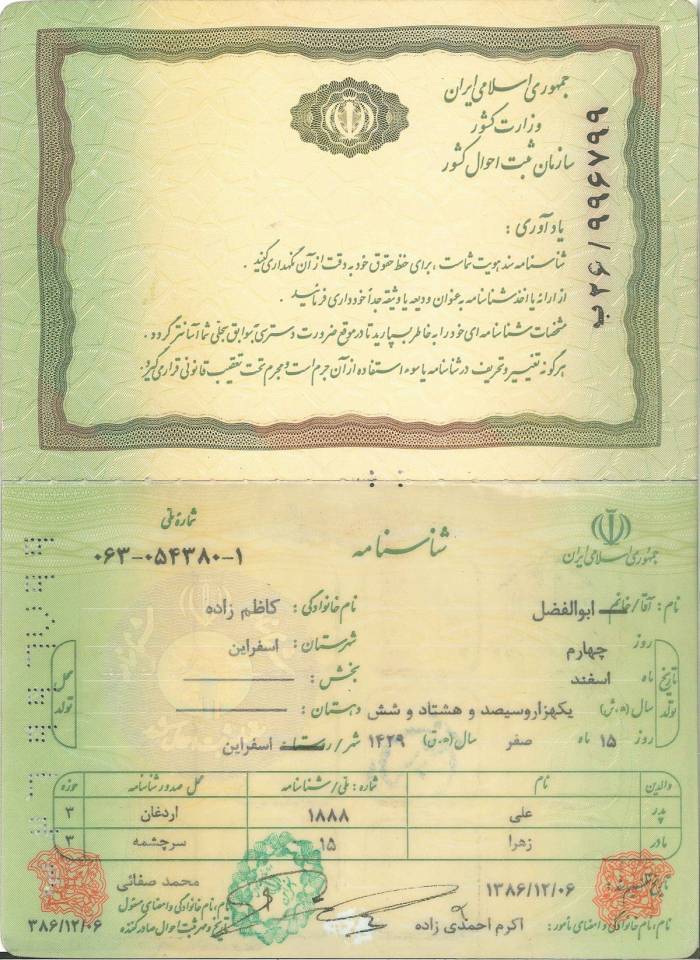 جمهوری اسلامی ایران
وزارت کشور
سازمان ثبت احوال کشور
ب۲۶/۹۹۶۷۹۹
یادآوری :
شناسنامه سند هویت شماست ، برای حفظ حقوق خود به دقت از آن نگهداری کنید .
از ارائه یا اخذ شناسنامه به عنوان ودیعه یا وثیقه جداً خودداری فرمائید .
مشخصات شناسنامه ای خود را به خاطر بسپارید تا در موقع ضرورت دسترسی به سوابق سجلی شما آسانتر گردد .
هرگونه تغییر و تحریف در شناسنامه یا سوء استفاده از آن جرم است و مجرم تحت تعقیب قانونی قرار می گیرد.
جمهوری اسلامی ایران
شناسنامه
شماره ملی
۰۶۳-۰۵۴۳۸۰-۱
نام : آقا/خانم ابوالفضل نام خانوادگی : کاظم زاده
تاریخ تولد
روز چهارم
ماه اسفند
سال (ه.ش) یکهزاروسیصد و هشتاد و شش
روز ۱۵ ماه صفر سال (ه.ق) ۱۴۲۹
محل تولد
شهرستان : اسفراین
بخش :
دهستان :
شهر/روستا اسفراین
والدین نام شماره : ملی/شناسنامه محل صدور شناسنامه حوزه
پدر علی ۱۸۸۸ اردغان ۳
مادر زهرا ۱۵ سرچشمه ۳
تاریخ تنظیم سند : ۱۳۸۶/۱۲/۰۶
نام، نام خانوادگی و امضای مامور: اکرم احمدی زاده
محمد صفائی
نام، نام خانوادگی و امضای مسئول
تاریخ و مهر ثبت احوال صادرکننده
۳۸۶/۱۲/۰۶